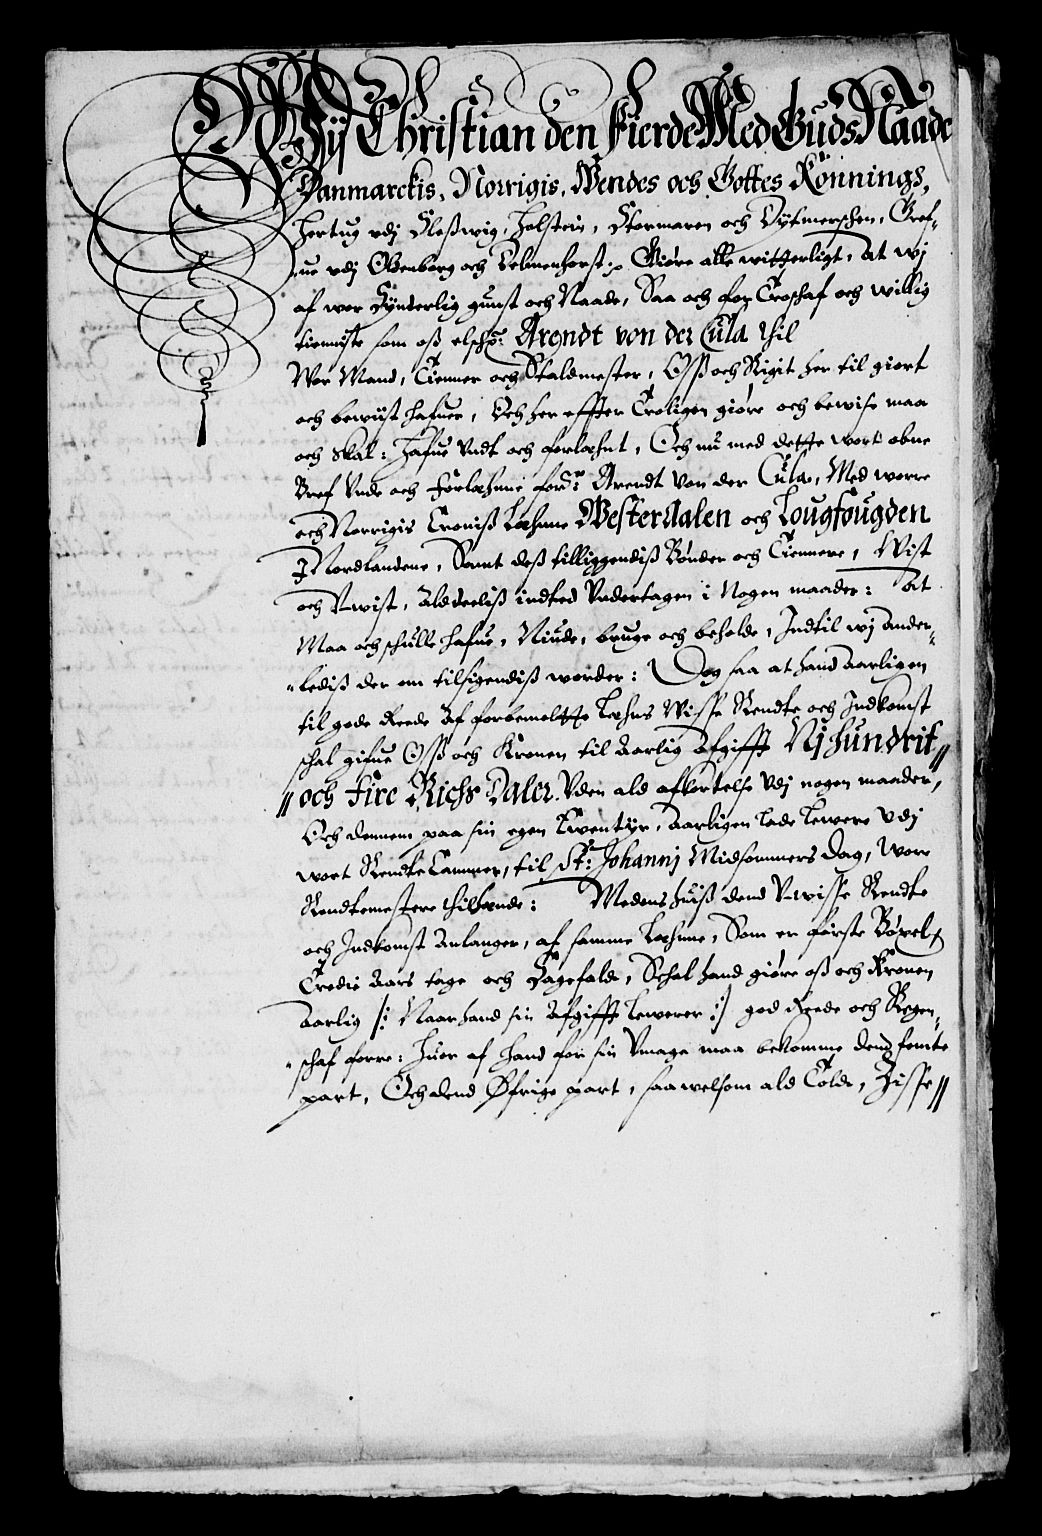 Wij Christian den Fierde Med Guds Naade
Danmarckis, Norrigis, Wendes och Gottes Konning,
Hertug vdj Sleßwig, Holstein, Stormaren och Dytmerschen, Gref-
ue vdj Oldenborg och Delmenhorst, Giöre alle witterligt, At wj
af wor Synderlig gunst och Naade, Saa och for Troschaf och willig
tienniste som oß elsch: Arendt von der Cula thil
Wor Mand, Tienner och Staldmester, Oss och Rigit her til giort
och bewiist hafuer, Och her effter Troligen giöre och bewise maa
och skal: Hafue Vndt och forlehnt, Och nu med dette wort obne
Bref Vnde och Forlehnne ford: Arendt Von der Cula, Med worre
och Norrigis Croniß Lehnne Westerdalen och Lougfougden
J Nordlandene, Samt deß tilliggendiß Bönder och Tiennere, Wist
och V-wist, Aldeeliß indted Vndertagen i Nogen maader: At
Maa och schulle hafue, Niude, bruge och beholde, Indtil wj ander-
lediß der om tilsigendiß worder: Dog saa at hand Aarligen
til gode Reede Af forbemeltte Lehns Wisse Rendte och Indkomst
schal gifue Oss och Kronen til Aarlig Afgifft Nj Hundrit
och Fire Richs Daler. Vden ald afkortelse Vdj nogen maader,
Och dennem paa sin egen Euentyr, Aarligen lade Lewere Vdj
wort Rendte Cammer, til St: Johannj Midsommers Dag, Wore
Rendtemestere thilhende: Medens huiß dend V-wisse Rendte
och Indkomst Anlanger, af samme Lehnne, Som er förste Böxel,
Tredie Aars tage och Sagefald, Schal hand giöre oß och Kronen
Aarlig /: Naar hand sin Afgifft Lewerer :/ god Rede och Regen-
schaf forre: Huer af hand for sin Vmage maa bekomme dend femte
part, Och dend Öfrige part, saawelsom ald Told, Zisse